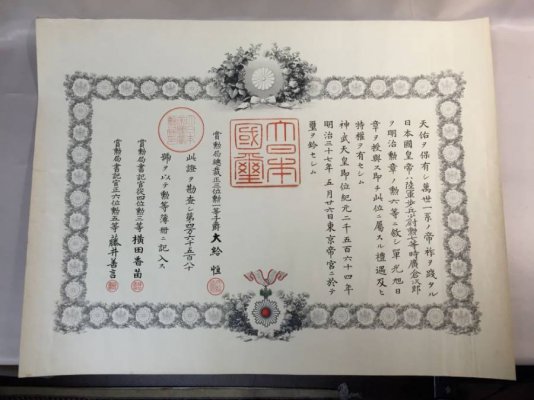 天佑ヲ保有シ萬世一系ノ帝祚ヲ踐タル
日本國皇帝ハ陸軍歩兵少尉勲七等時廣倉次郎
ヲ明治勲章ノ勲六等ニ敘シ單光旭日
章ヲ授與ス即チ此位ニ屬スル禮遇及ヒ
特權ヲ有セシム
神武天皇即位紀元二千五百六十四年
明治三十七年五月廿六日東京帝宮ニ於テ
璽ヲ鈐セシム
大日本
國璽
賞勲局總裁正三位勲一等子爵大給恒
此證ヲ勘査シ第四万六千五百八十
號ヲ以テ勲等簿冊ニ記入ス
賞勲局書記官從四位勲三等横田香苗
賞勲局書記官正六位勲五等藤井善言